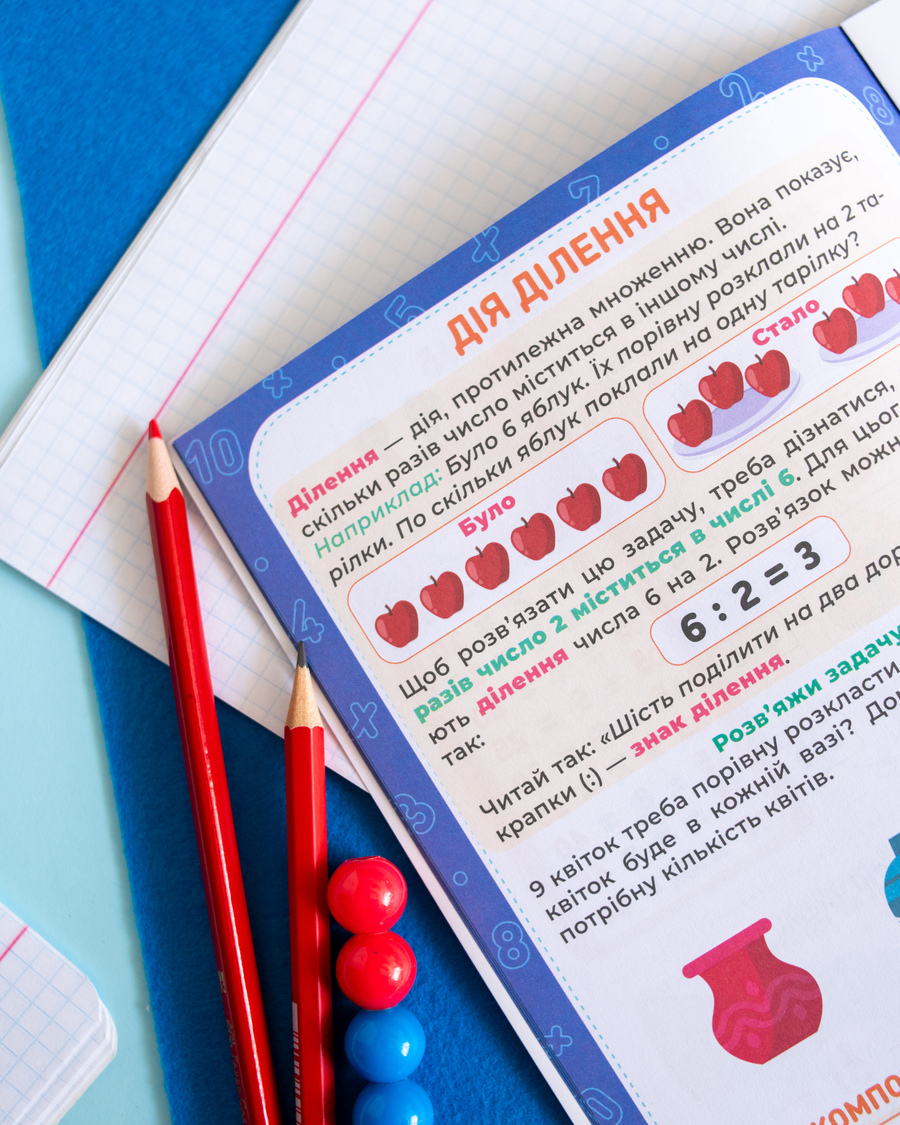 ДІЯ ДІЛЕННЯ
Ділення — дія, протилежна множенню. Вона показує,
скільки разів число міститься в іншому числі.
Наприклад: Було 6 яблук. Їх порівну розклали на 2 та-
рілки. По скільки яблук поклали на одну тарілку?
Було
Стало
Щоб розв'язати цю задачу, треба дізнатися,
разів число 2 міститься в числі 6. Для цьог
ють ділення числа 6 на 2. Розв'язок можн
так:
6 : 2 = 3
Читай так: «Шість поділити на два дор
крапки (:) — знак ділення.
Розв'яжи задачу
9 квіток треба порівну розкласти
квіток буде в кожній вазі? До
потрібну кількість квітів.
КОМПО
10
5
7
2
8
4
3
8
0